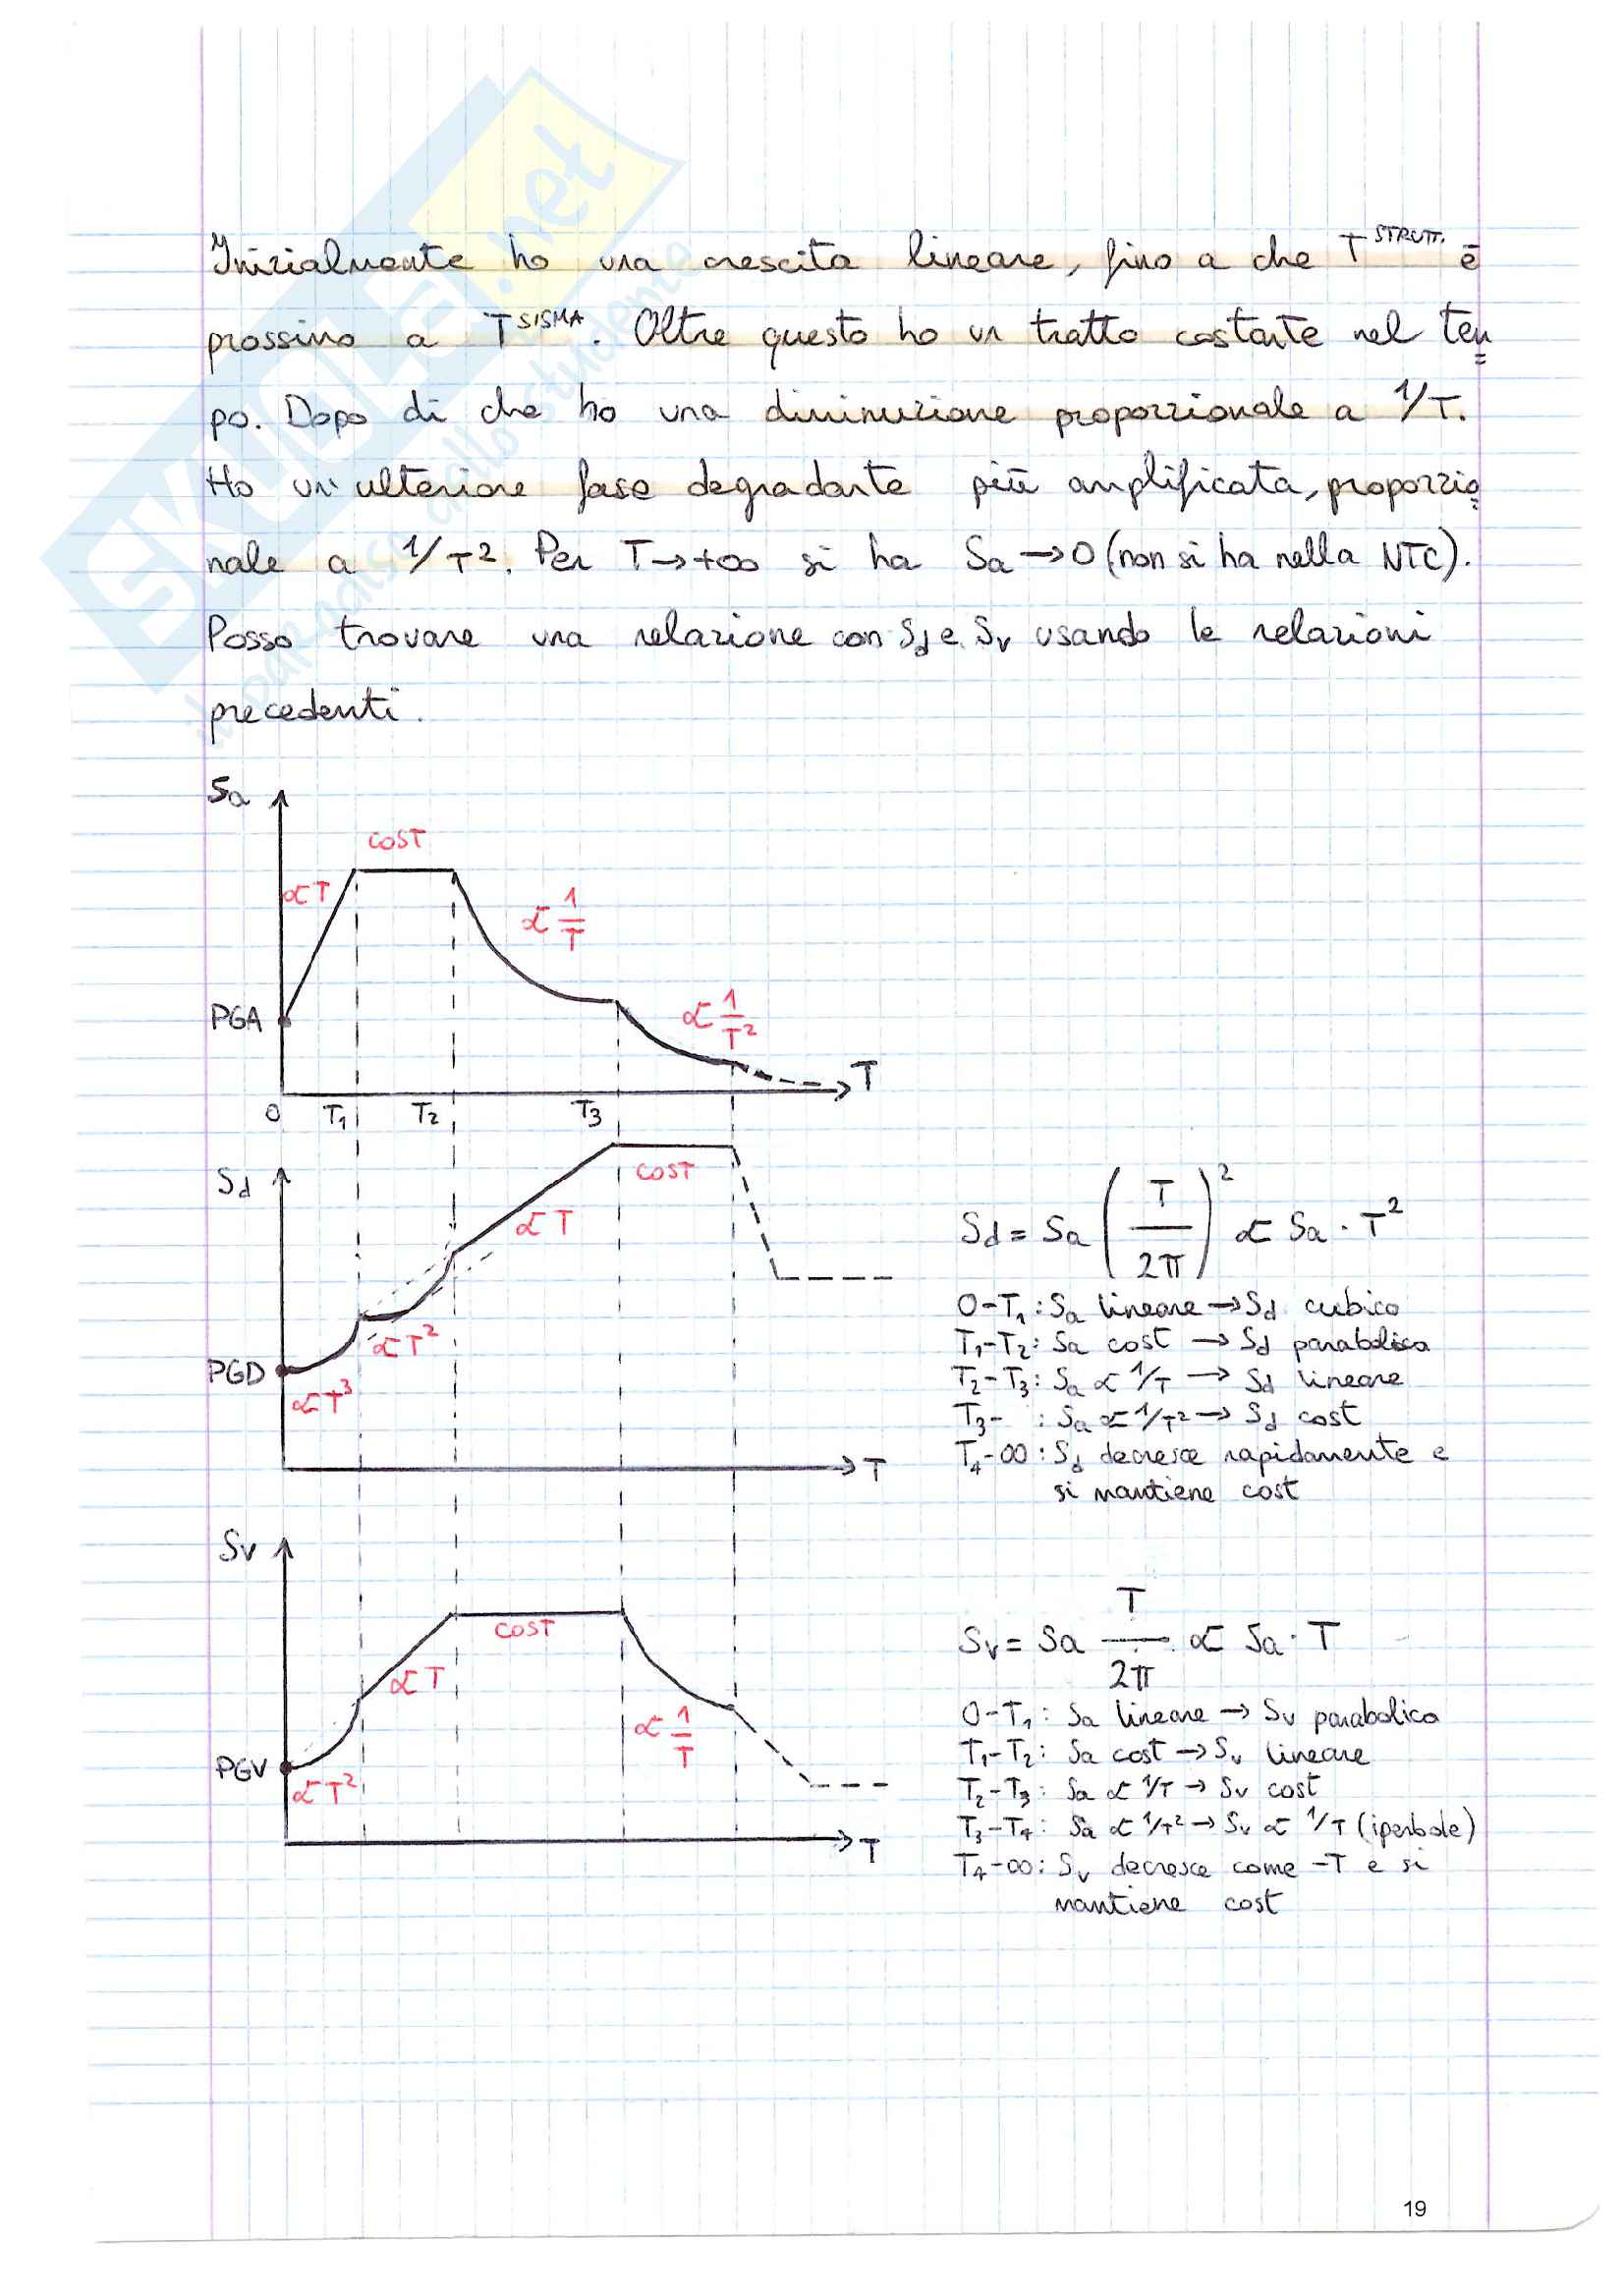 Inizialmente ho una crescita lineare, fino a che T^STRUTT. è
prossimo a T^SISMA. Oltre questo ho un tratto costante nel tem
po. Dopo di che ho una diminuzione proporzionale a 1/T.
Ho un'ulteriore fase degradante più amplificata, proporzio
nale a 1/T². Per T→+∞ si ha Sa→0 (non si ha nella NTC).
Posso trovare una relazione con Sd e Sv usando le relazioni
precedenti.
SKUOLA.net
Sa
COST
∝T
∝ 1/T
PGA
∝ 1/T²
T
0 T₁ T₂ T₃
Sd
COST
∝T
∝T²
PGD
∝T³
T
Sd = Sa (T/2π)² ∝ Sa · T²
0-T₁: Sa lineare → Sd cubico
T₁-T₂: Sa cost → Sd parabolica
T₂-T₃: Sa ∝ 1/T → Sd lineare
T₃- : Sa ∝ 1/T² → Sd cost
T₄-∞: Sd decresce rapidamente e
si mantiene cost
Sv
COST
∝T
∝ 1/T
PGV
∝T²
T
Sv = Sa T/2π ∝ Sa · T
0-T₁: Sa lineare → Sv parabolico
T₁-T₂: Sa cost → Sv lineare
T₂-T₃: Sa ∝ 1/T → Sv cost
T₃-T₄: Sa ∝ 1/T² → Sv ∝ 1/T (iperbole)
T₄-∞: Sv decresce come -T e si
mantiene cost
19